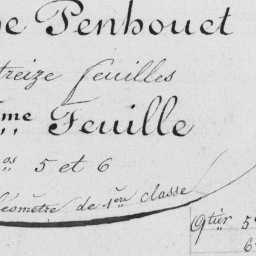 De Penhouet
treize feuilles
ème Feuille
os 5 et 6
Géomètre de 1ère classe
Qtier 5
6